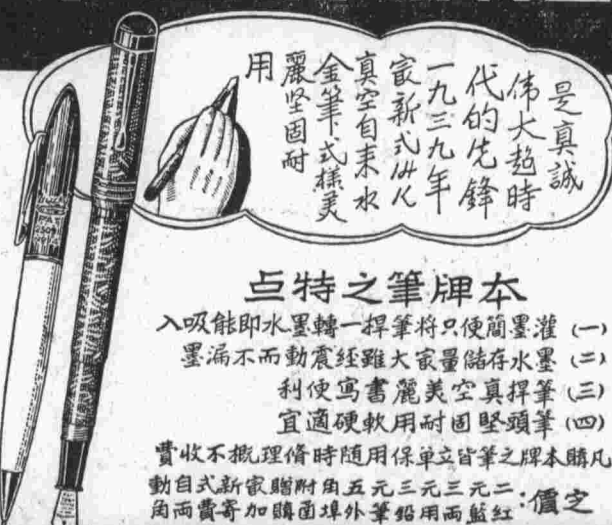 是真誠
伟大超時
代的先鋒
一九三九年
㝡新式
真空自来水
金筆式樣美
麗坚固耐
用
本牌筆之特点
(一) 灌墨簡便只将筆捍一轉墨水即能吸入
(二) 墨水存儲量㝡大雖經震動而不漏墨
(三) 筆捍真空美麗書寫便利
(四) 筆頭堅固耐用軟硬適宜
凡購本牌之筆皆立單保用随時修理概不收費
定價:二元三元三元五角附贈㝡新式自動
紅藍兩用鉛筆外埠函購加寄費兩角